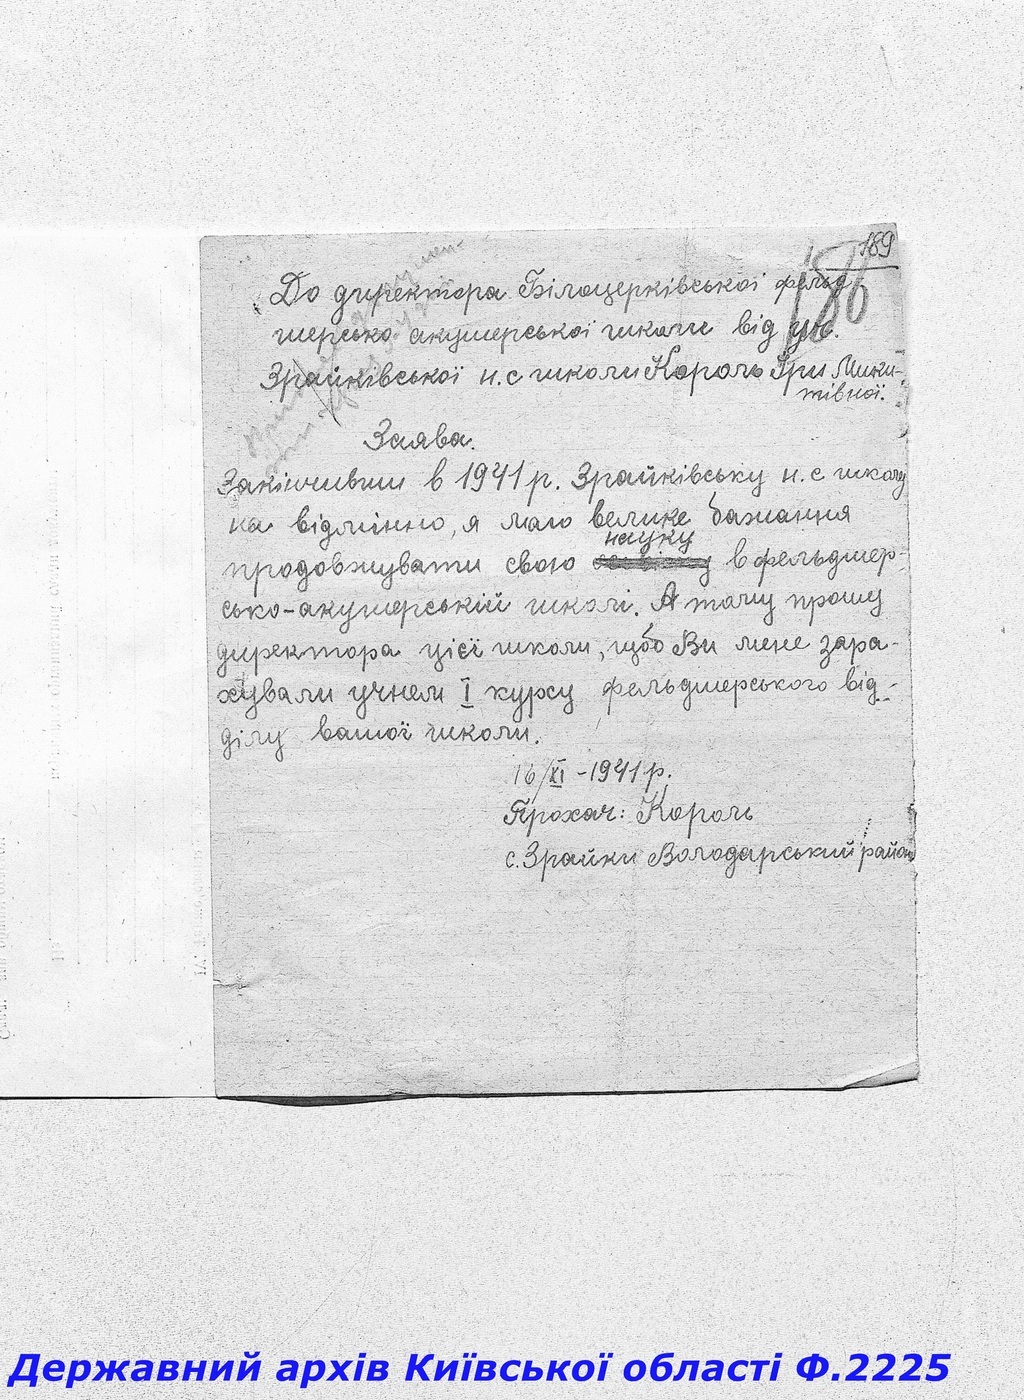 189
186
До директора Білоцерківської фельд
шерсько акушерської школи від уч.
Зрайківської н.с школи Король Іри Мики-
тівної.
Заява.
Закінчивши в 1941 р. Зрайківську н.с школу
на відмінно, я маю велике бажання
науку
продовжувати свою в фельдшер-
сько-акушерській школі. А тому прошу
директора цієї школи, щоб Ви мене зара-
хували учнем І курсу фельдшерського від-
ділу вашої школи.
16/XI -1941 р.
Прохач: Король
с. Зрайки Володарський район
Державний архів Київської області Ф.2225